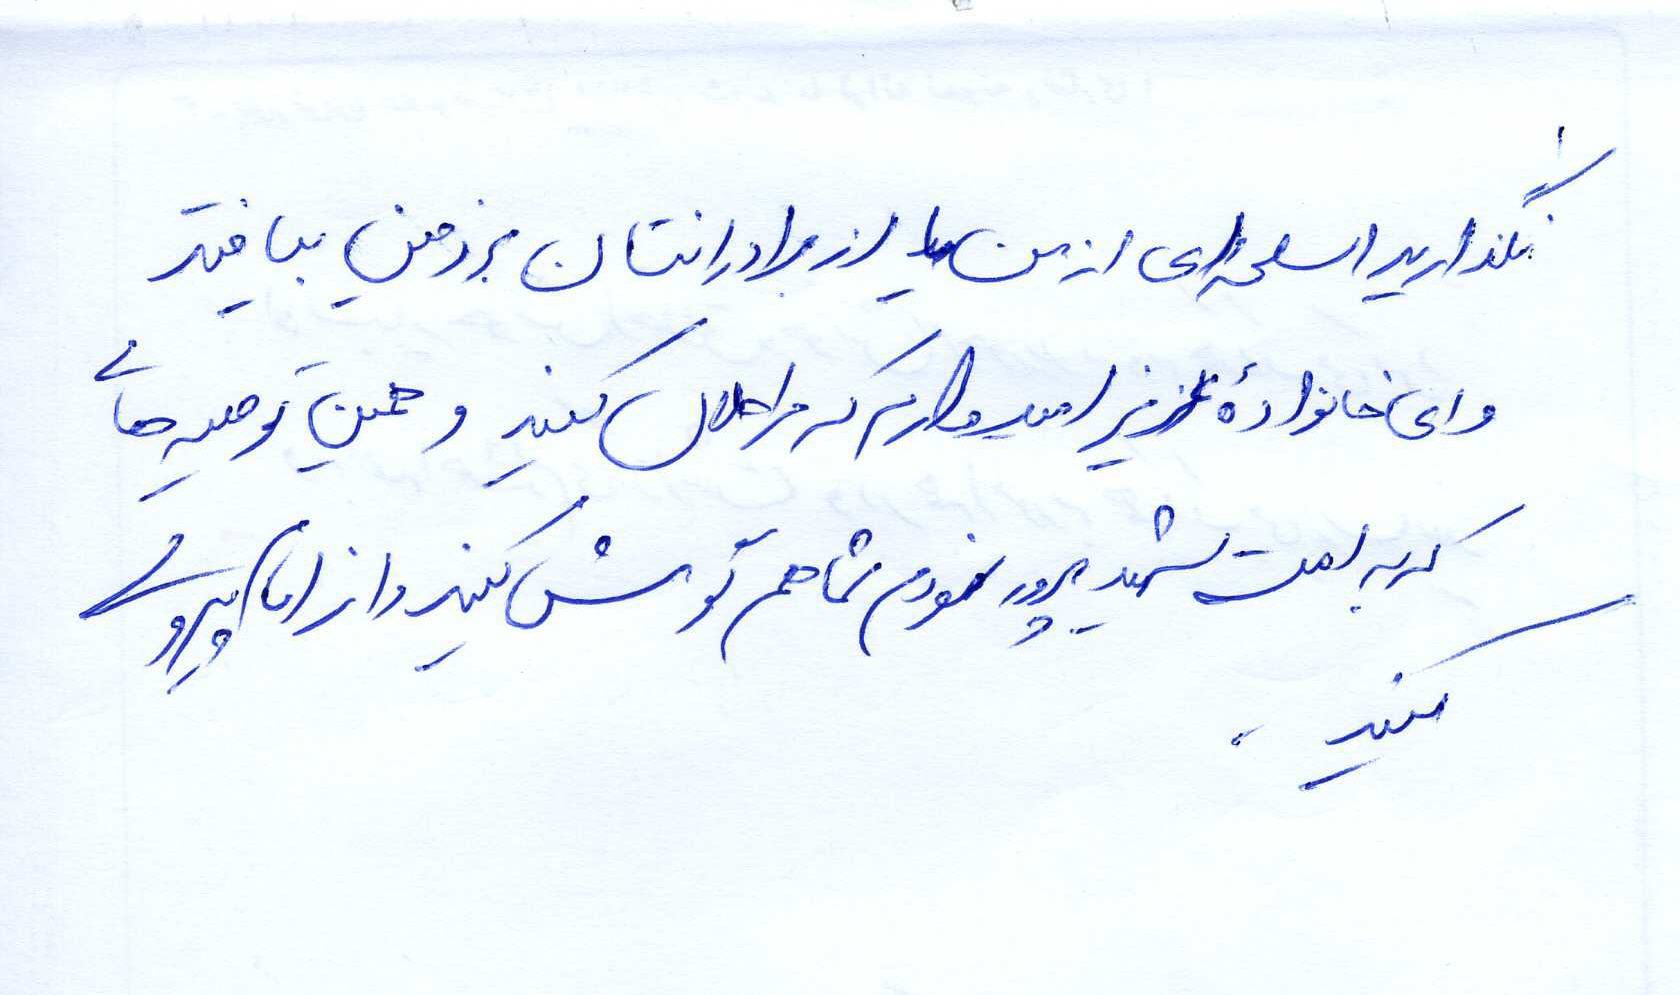 نگذارید اسلحه‌ای از من یا از برادرانتان بر زمین بیافتد
و ای خانوادهٔ عزیز امیدوارم که مرا حلال کنید و همین توصیه‌هائی
که به امت شهید پرور نمودم شما هم گوش کنید و از امام پیروی
کنید.